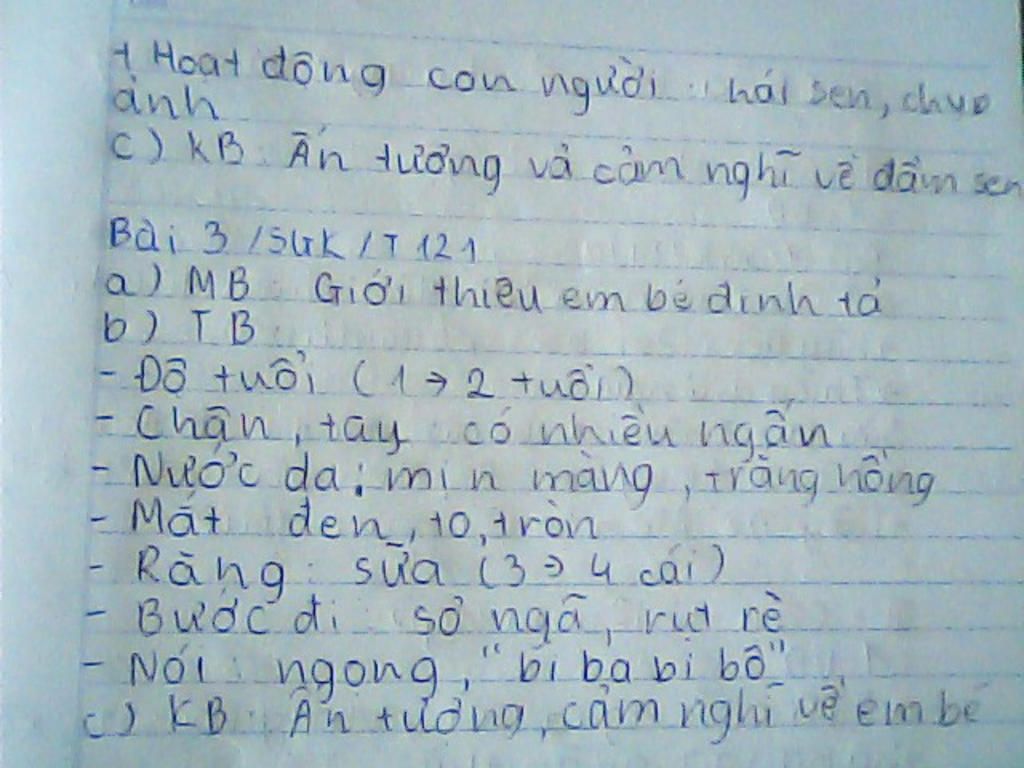 + Hoạt động con người: hái sen, chụp
ảnh
c) KB: Ấn tượng và cảm nghĩ về đầm sen
Bài 3 / SGK / T 121
a) MB: Giới thiệu em bé định tả
b) TB:
- Độ tuổi (1 → 2 tuổi)
- Chân, tay: có nhiều ngấn
- Nước da: mịn màng, trắng hồng
- Mắt: đen, to, tròn
- Răng: sữa (3 → 4 cái)
- Bước đi: sợ ngã, rụt rè
- Nói: ngọng, "bi ba bi bô"
c) KB: Ấn tượng, cảm nghĩ về em bé